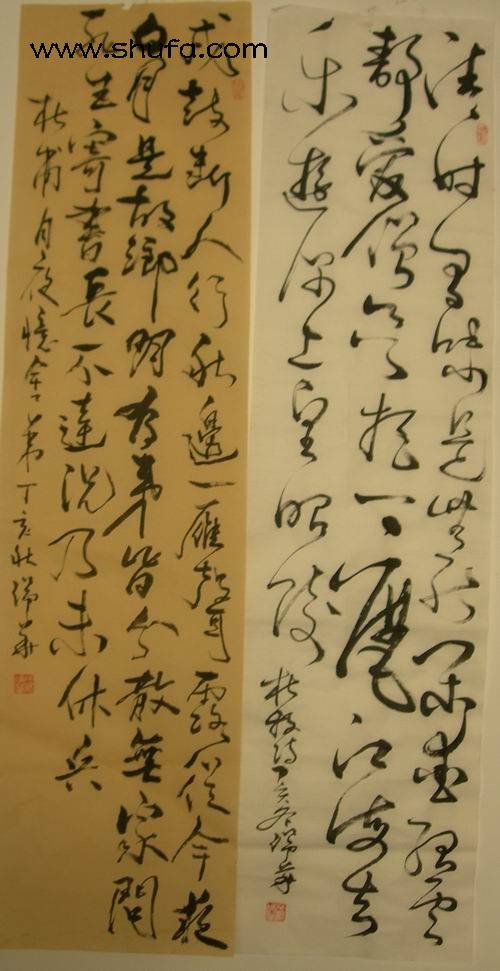 www.shufa.com
清時有味是無能閑愛孤雲
靜愛僧欲把一麾江海去
樂遊原上望昭陵
杜牧詩丁亥冬瑞華
戍鼓斷人行秋邊一雁聲露從今夜
白月是故鄉明有弟皆分散無家問
死生寄書長不達況乃未休兵
杜甫月夜憶舍弟丁亥秋瑞華